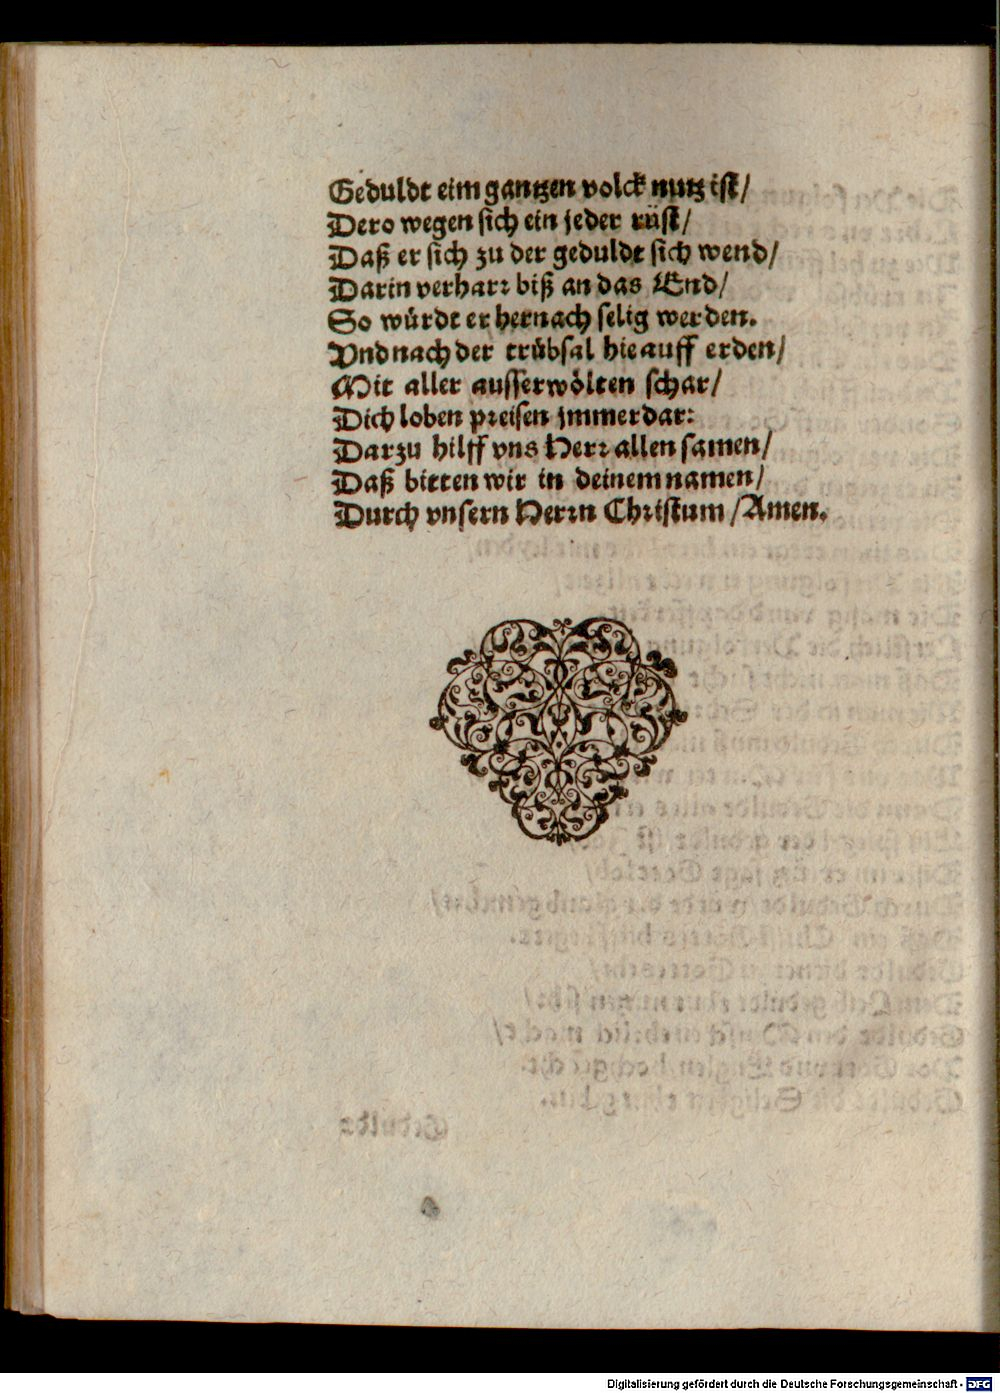 Geduldt eim gantzen volck nutz ist/
Dero wegen sich ein jeder rüst/
Daß er sich zu der geduldt sich wend/
Darin verharr biß an das End/
So würdt er hernach selig werden.
Vnd nach der trübsal hie auff erden/
Mit aller ausserwölten schar/
Dich loben preisen jmmerdar:
Darzu hilff vns Herr allen samen/
Daß bitten wir in deinem namen/
Durch vnsern Herrn Christum /Amen.
Digitalisierung gefördert durch die Deutsche Forschungsgemeinschaft - DFG